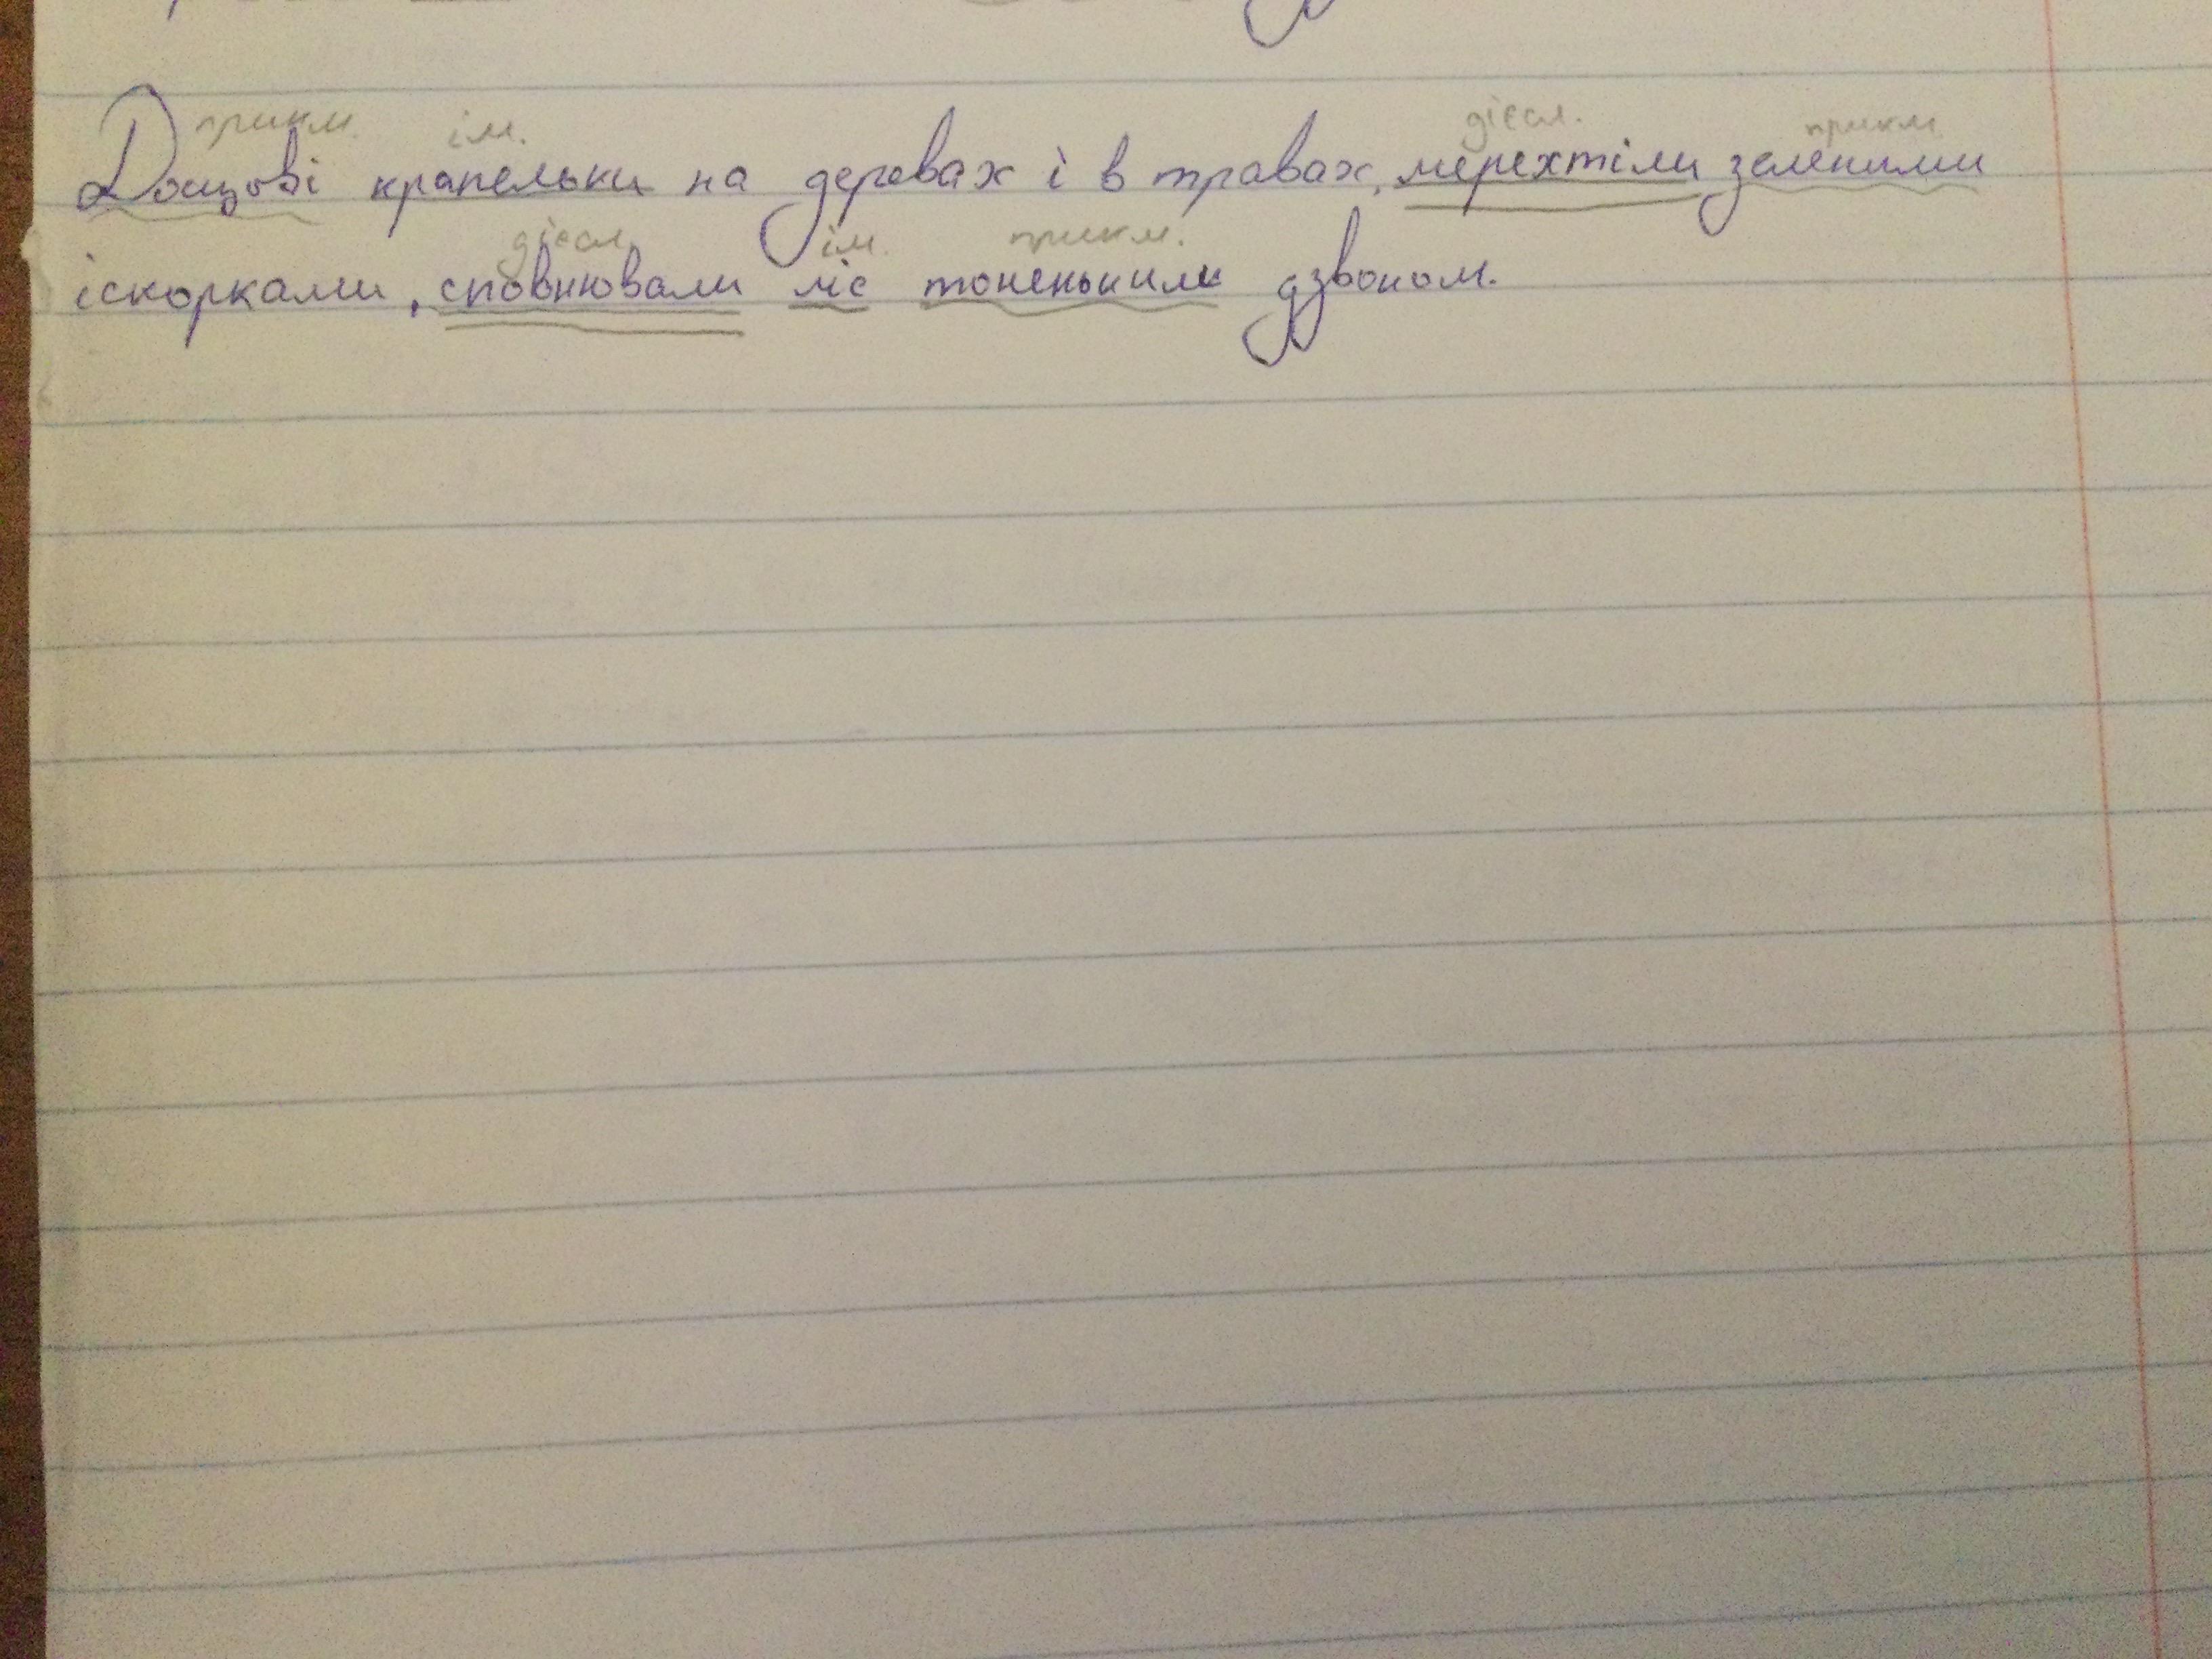 прикм. ім. дієсл. прикм.
Дощові крапельки на деревах і в травах, мерехтіли зеленими
дієсл. ім. прикм.
іскорками, сповнювали ліс тоненьким дзвоном.